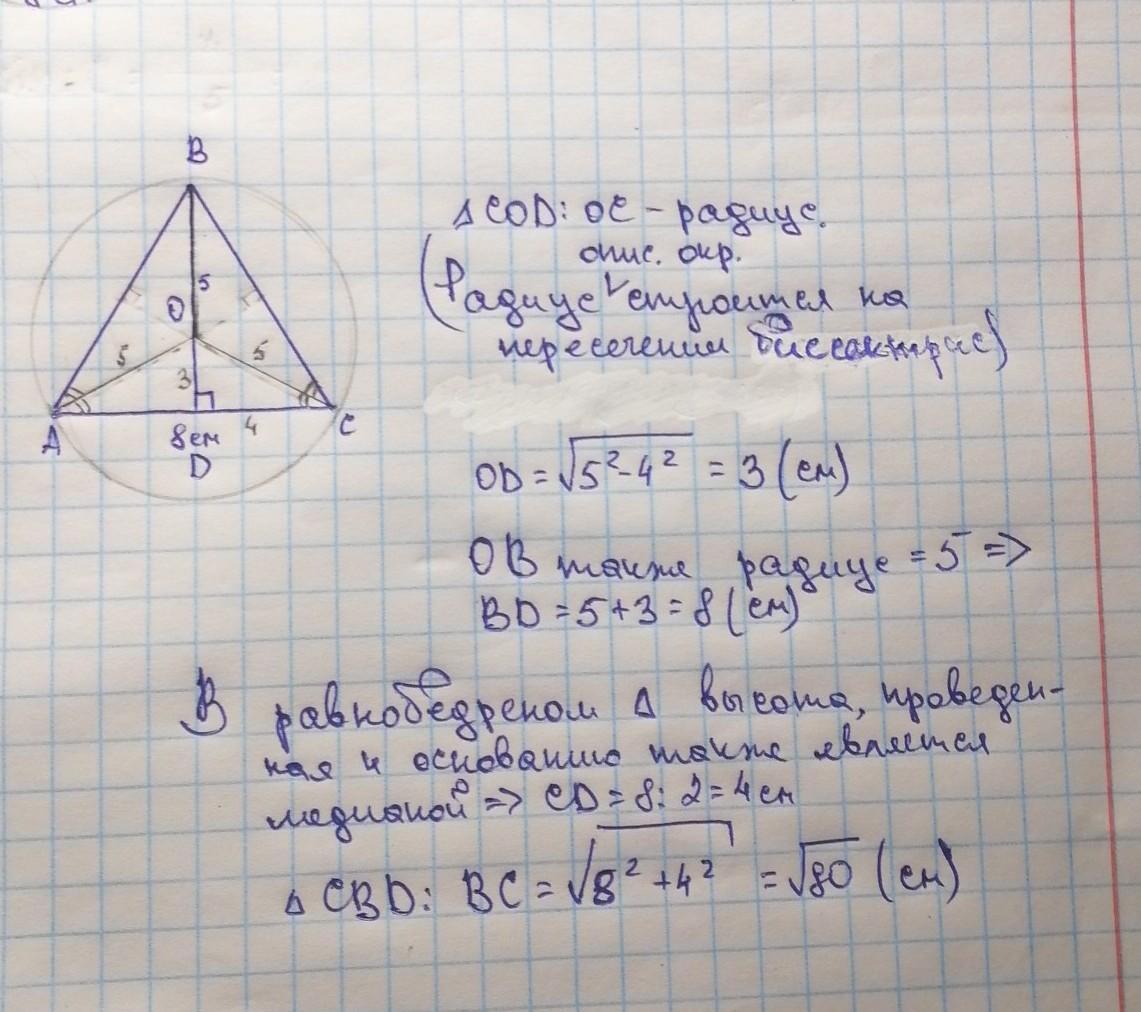 B
5
O
5
5
3
A
8см
4
C
D
△COD: OC - радиус.
опис. окр.
(Радиус строится на
пересечении биссектрис)
OD = √5² - 4² = 3 (см)
OB также радиус = 5 =>
BD = 5 + 3 = 8 (см)
В равнобедреном △ высота, проведен-
ная к основанию также является
медианой => CD = 8 : 2 = 4 см
△ CBD: BC = √8² + 4² = √80 (см)